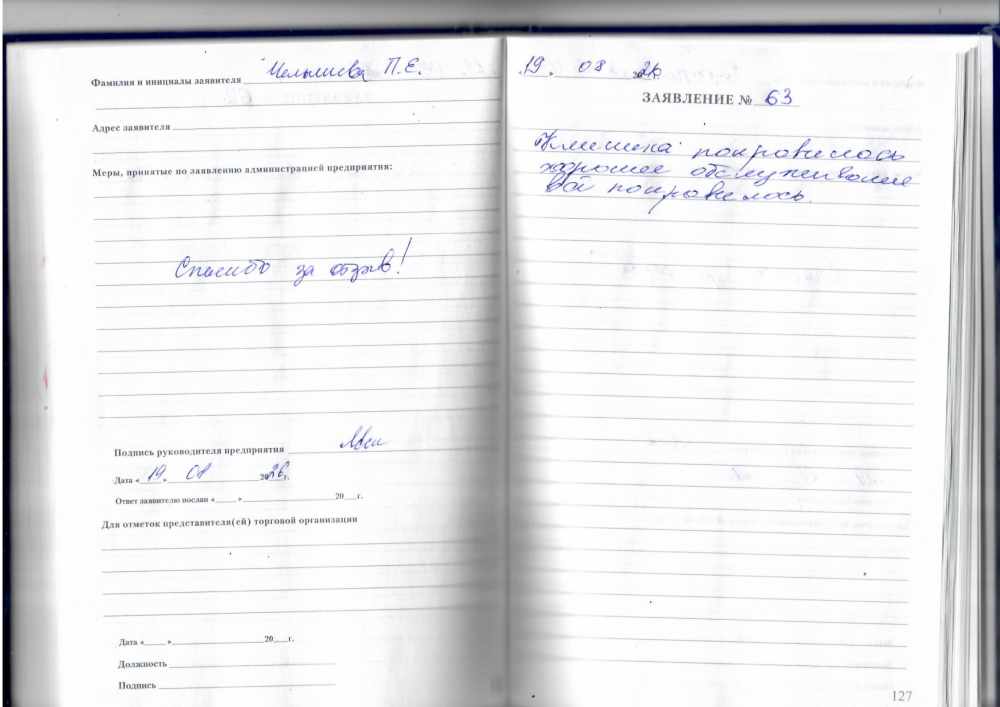 Фамилия и инициалы заявителя П.Е.
Адрес заявителя
Меры, принятые по заявлению администрацией предприятия:
Спасибо за отзыв!
Подпись руководителя предприятия
Дата «19» 08 2026г.
Ответ заявителю послан «____» 20__г.
Для отметок представителя(ей) торговой организации
Дата «____» 20__г.
Должность
Подпись
19. 08 2026
ЗАЯВЛЕНИЕ № 63
понравилось
хорошее обслуживание
всё понравилось.
127